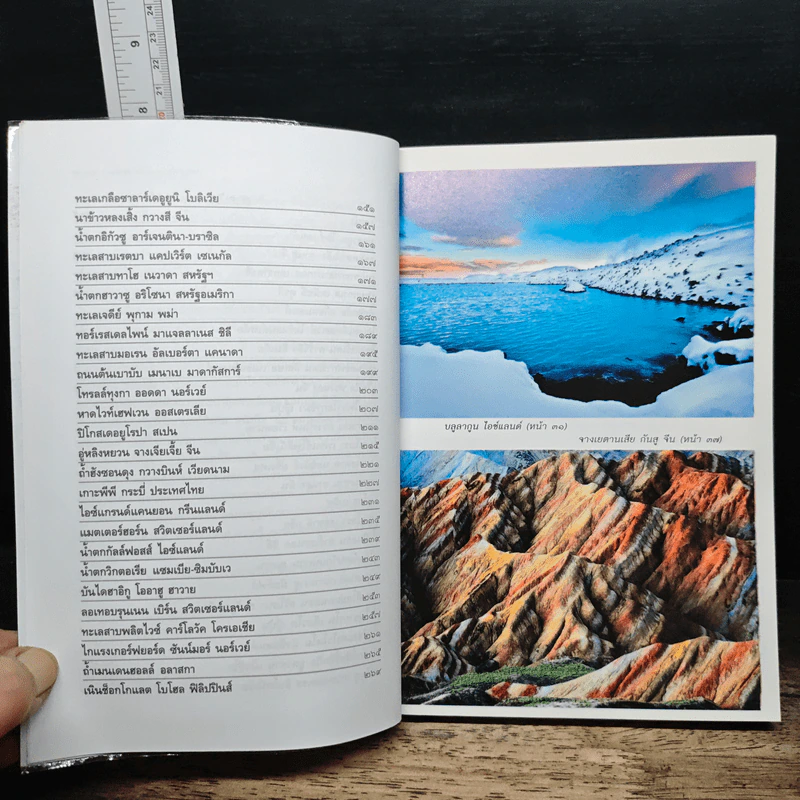 9
24
23
22
21
8
20
ทะเลเกลือซาลาร์เดอูยูนิ โบลิเวีย ๑๕๑
นาข้าวหลงเสิ้ง กวางสี จีน ๑๕๗
น้ำตกอิกัวซู อาร์เจนตินา-บราซิล ๑๖๑
ทะเลสาบเรตบา แคปเวิร์ต เซเนกัล ๑๖๗
ทะเลสาบทาโฮ เนวาดา สหรัฐฯ ๑๗๑
น้ำตกฮาวาซู อริโซนา สหรัฐอเมริกา ๑๗๗
ทะเลเจดีย์ พุกาม พม่า ๑๘๓
ทอร์เรสเดลไพน์ มาแจลลาเนส ชิลี ๑๘๙
ทะเลสาบมอเรน อัลเบอร์ตา แคนาดา ๑๙๕
ถนนต้นเบาบับ เมนาเบ มาดากัสการ์ ๑๙๙
โทรลล์ทุงกา ออดดา นอร์เวย์ ๒๐๓
หาดไวท์เฮฟเวน ออสเตรเลีย ๒๐๗
ปิโกสเดอยูโรปา สเปน ๒๑๑
อู่หลิงหยวน จางเจียเจี้ย จีน ๒๑๕
ถ้ำฮังซอนดุง กวางบินห์ เวียดนาม ๒๒๑
เกาะพีพี กระบี่ ประเทศไทย ๒๒๗
ไอซ์แกรนด์แคนยอน กรีนแลนด์ ๒๓๑
แมตเตอร์ฮอร์น สวิตเซอร์แลนด์ ๒๓๕
น้ำตกกัลล์ฟอสส์ ไอซ์แลนด์ ๒๓๙
น้ำตกวิกตอเรีย แซมเบีย-ซิมบับเว ๒๔๓
บันไดฮาอิกู โออาฮู ฮาวาย ๒๔๙
ลอเทอบรุนเนน เบิร์น สวิตเซอร์แลนด์ ๒๕๓
ทะเลสาบพลิตไวซ์ คาร์โลวัค โครเอเชีย ๒๕๗
ไกแรงเกอร์ฟยอร์ด ซันน์มอร์ นอร์เวย์ ๒๖๑
ถ้ำเมนเดนฮอลล์ อลาสกา ๒๖๕
เนินช็อกโกแลต โบโฮล ฟิลิปปินส์ ๒๖๙
บลูลากูน ไอซ์แลนด์ (หน้า ๓๑)
จางเยตานเสีย กันสู จีน (หน้า ๓๗)